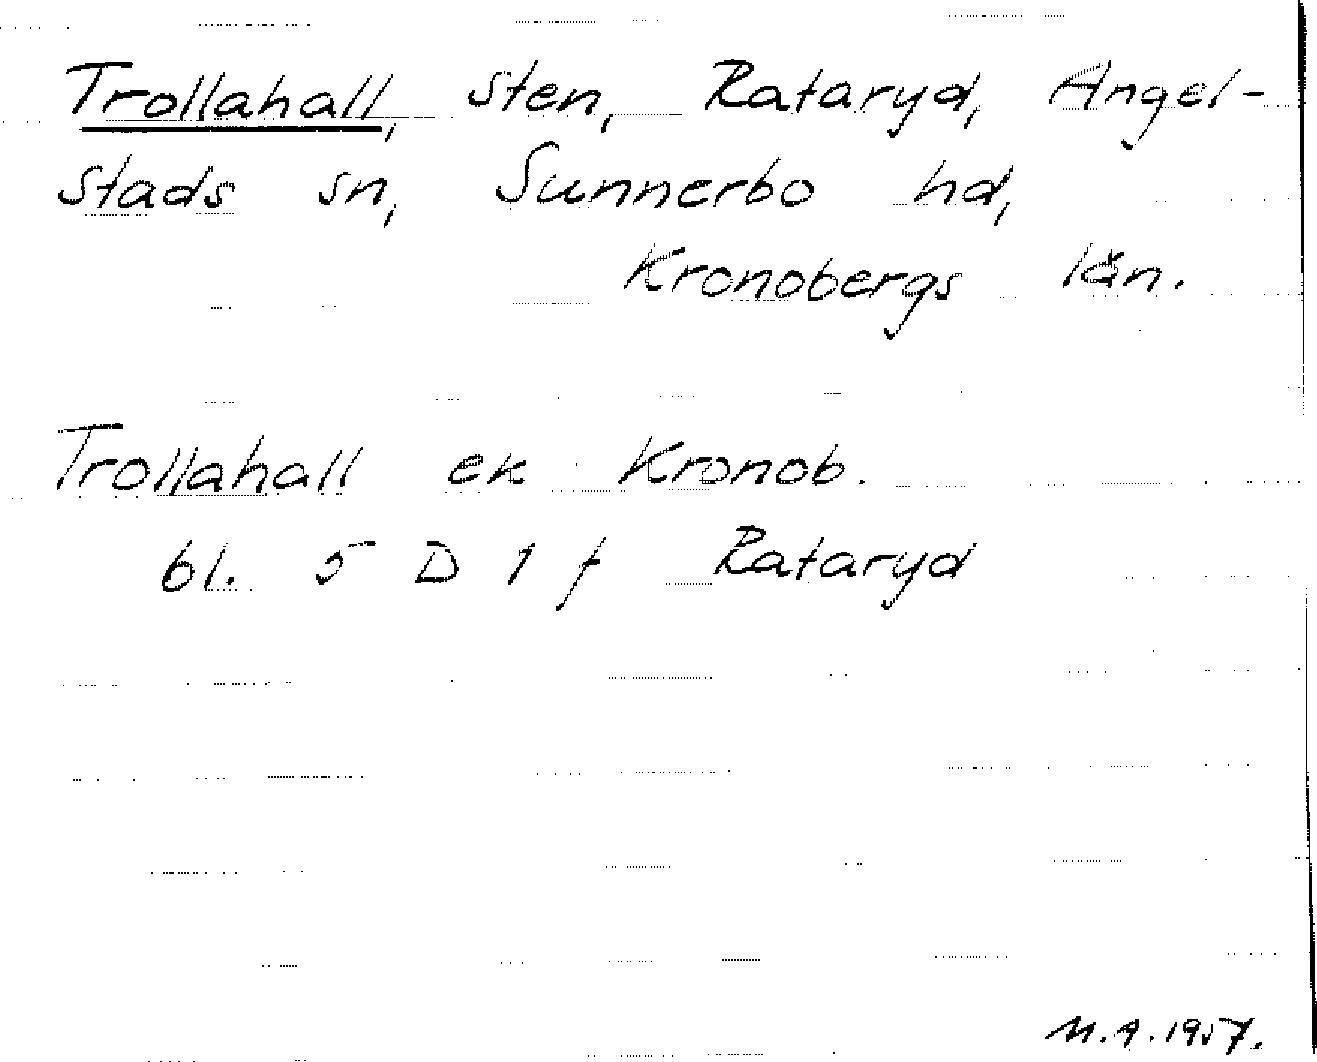 Trollahall, sten, Rataryd, Angel-
stads sn, Sunnerbo hd,
Kronobergs län.
Trollahall ek Kronob.
bl. 5 D 1 f Rataryd
M.A. 1957.